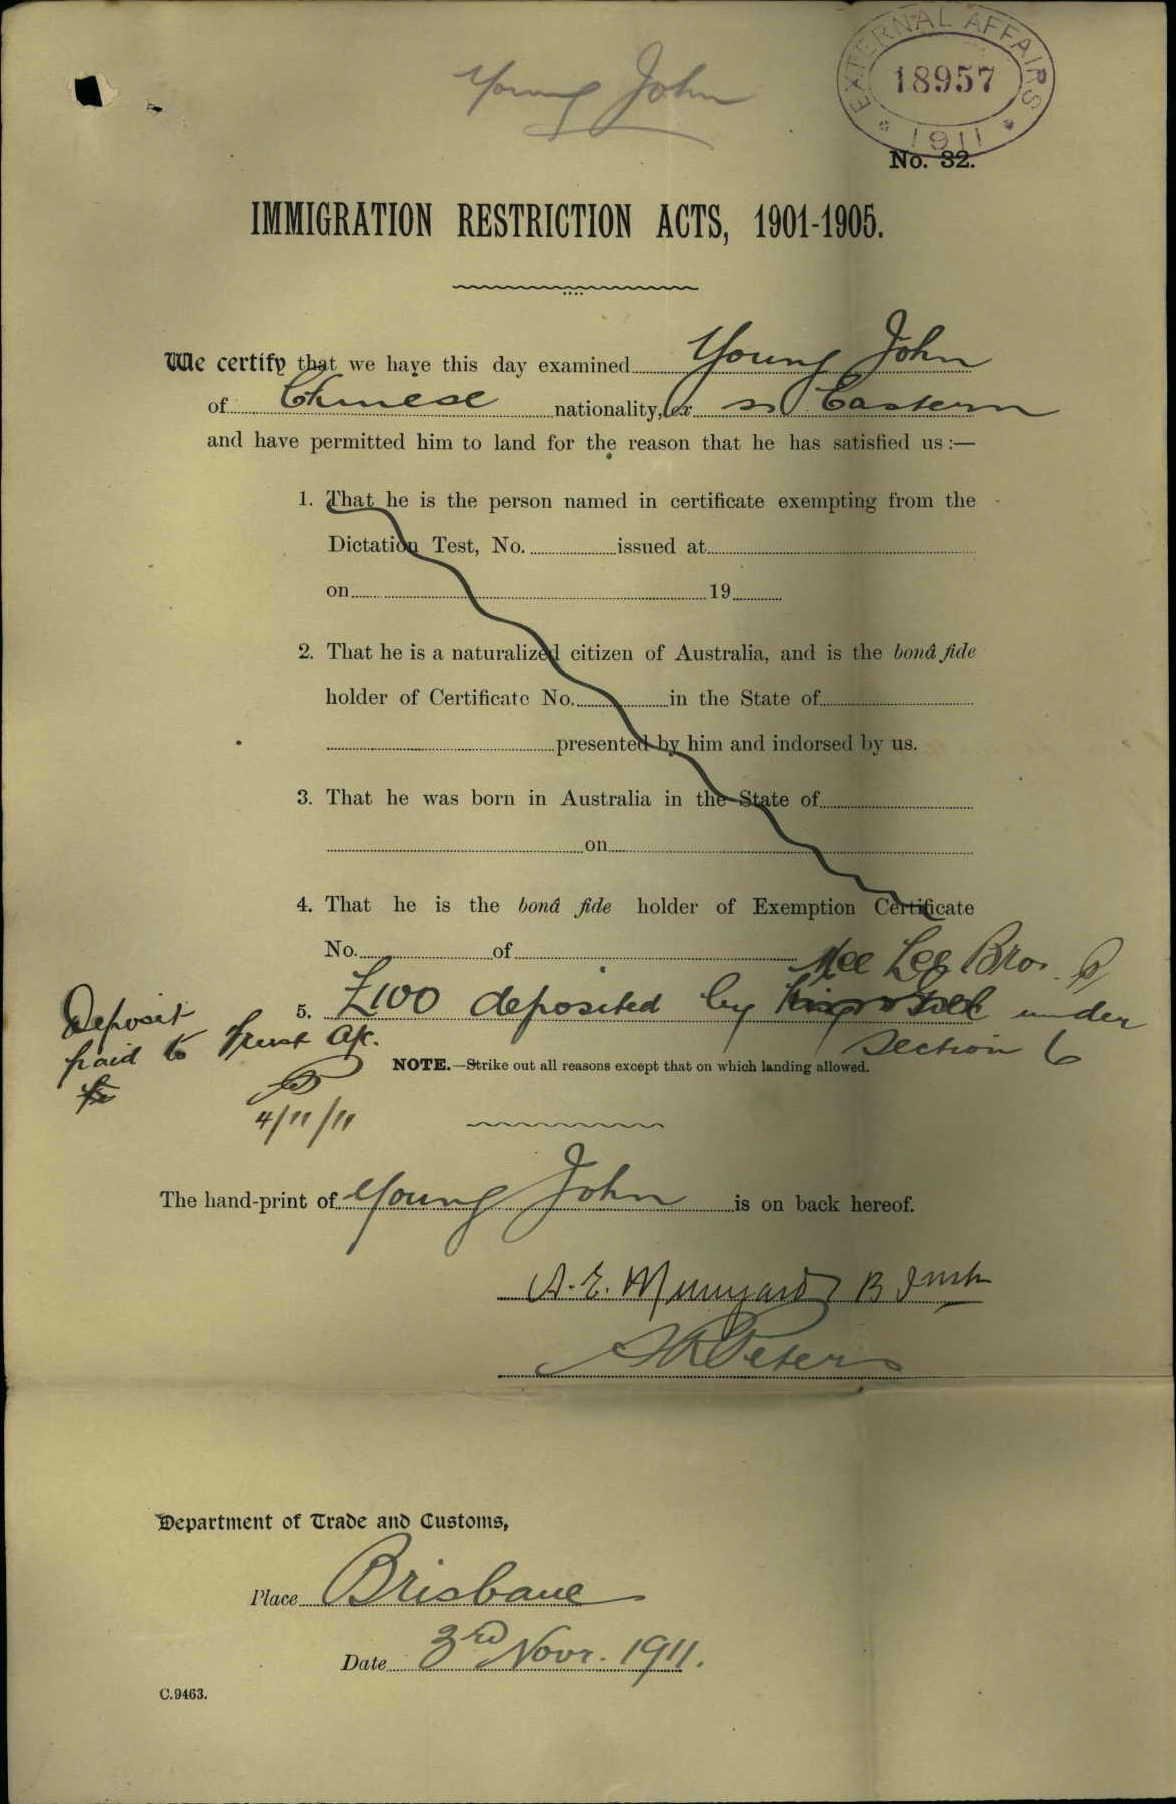 Young John
EXTERNAL AFFAIRS
18957
1911
No. 32.
IMMIGRATION RESTRICTION ACTS, 1901-1905.
We certify that we have this day examined Young John
of Chinese nationality, ex ss Eastern
and have permitted him to land for the reason that he has satisfied us :—
1. That he is the person named in certificate exempting from the
Dictation Test, No. issued at
on 19
2. That he is a naturalized citizen of Australia, and is the bonâ fide
holder of Certificate No. in the State of
presented by him and indorsed by us.
3. That he was born in Australia in the State of
on
4. That he is the bonâ fide holder of Exemption Certificate
No. of
Kee Lee Bros.
5. £100 deposited by under
section 6
Deposit
paid to Trust a/c.
4/11/11
NOTE.—Strike out all reasons except that on which landing allowed.
The hand-print of Young John is on back hereof.
A. E. Munyard B
Peters
Department of Trade and Customs,
Place Brisbane
Date 3rd Novr. 1911.
C.9463.